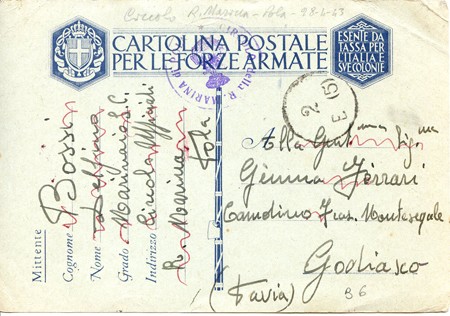 Circolo R. Marina - Pola - 28-6-43
CARTOLINA POSTALE
PER LE FORZE ARMATE
ESENTE DA
TASSA PER
L'ITALIA E
SVE COLONIE
della R. MARINA
2
E (5)
Mittente
Cognome Bossi
Nome
Grado Marinaio S.C.
Indirizzo Circolo Ufficiali
R. Marina
Pola
Alla Gent.ma Sig.na
Gemma Ferrari
Fraz. Montesegale
Godiasco
(Pavia)
B6